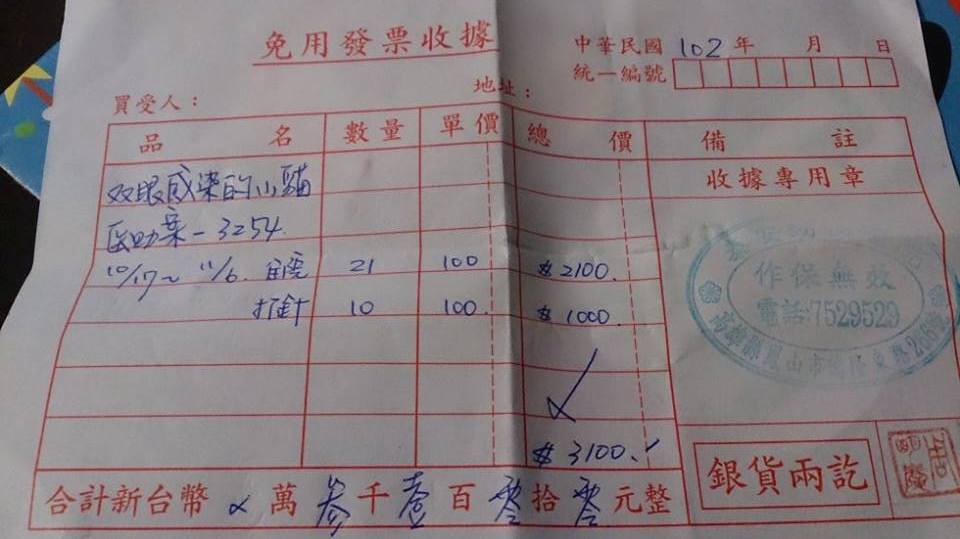 免用發票收據
中華民國 102 年 月 日
統一編號
買受人： 地址：
品名 數量 單價 總價 備註
收據專用章
双眼感染的小貓
医助案-3254.
10/17~11/6. 21 100 $2100.
打針 10 100. $1000.
$3100.
作保無效
電話:7529529
合計新台幣 x 萬 参 千 壹 百 零 拾 零 元整
銀貨兩訖